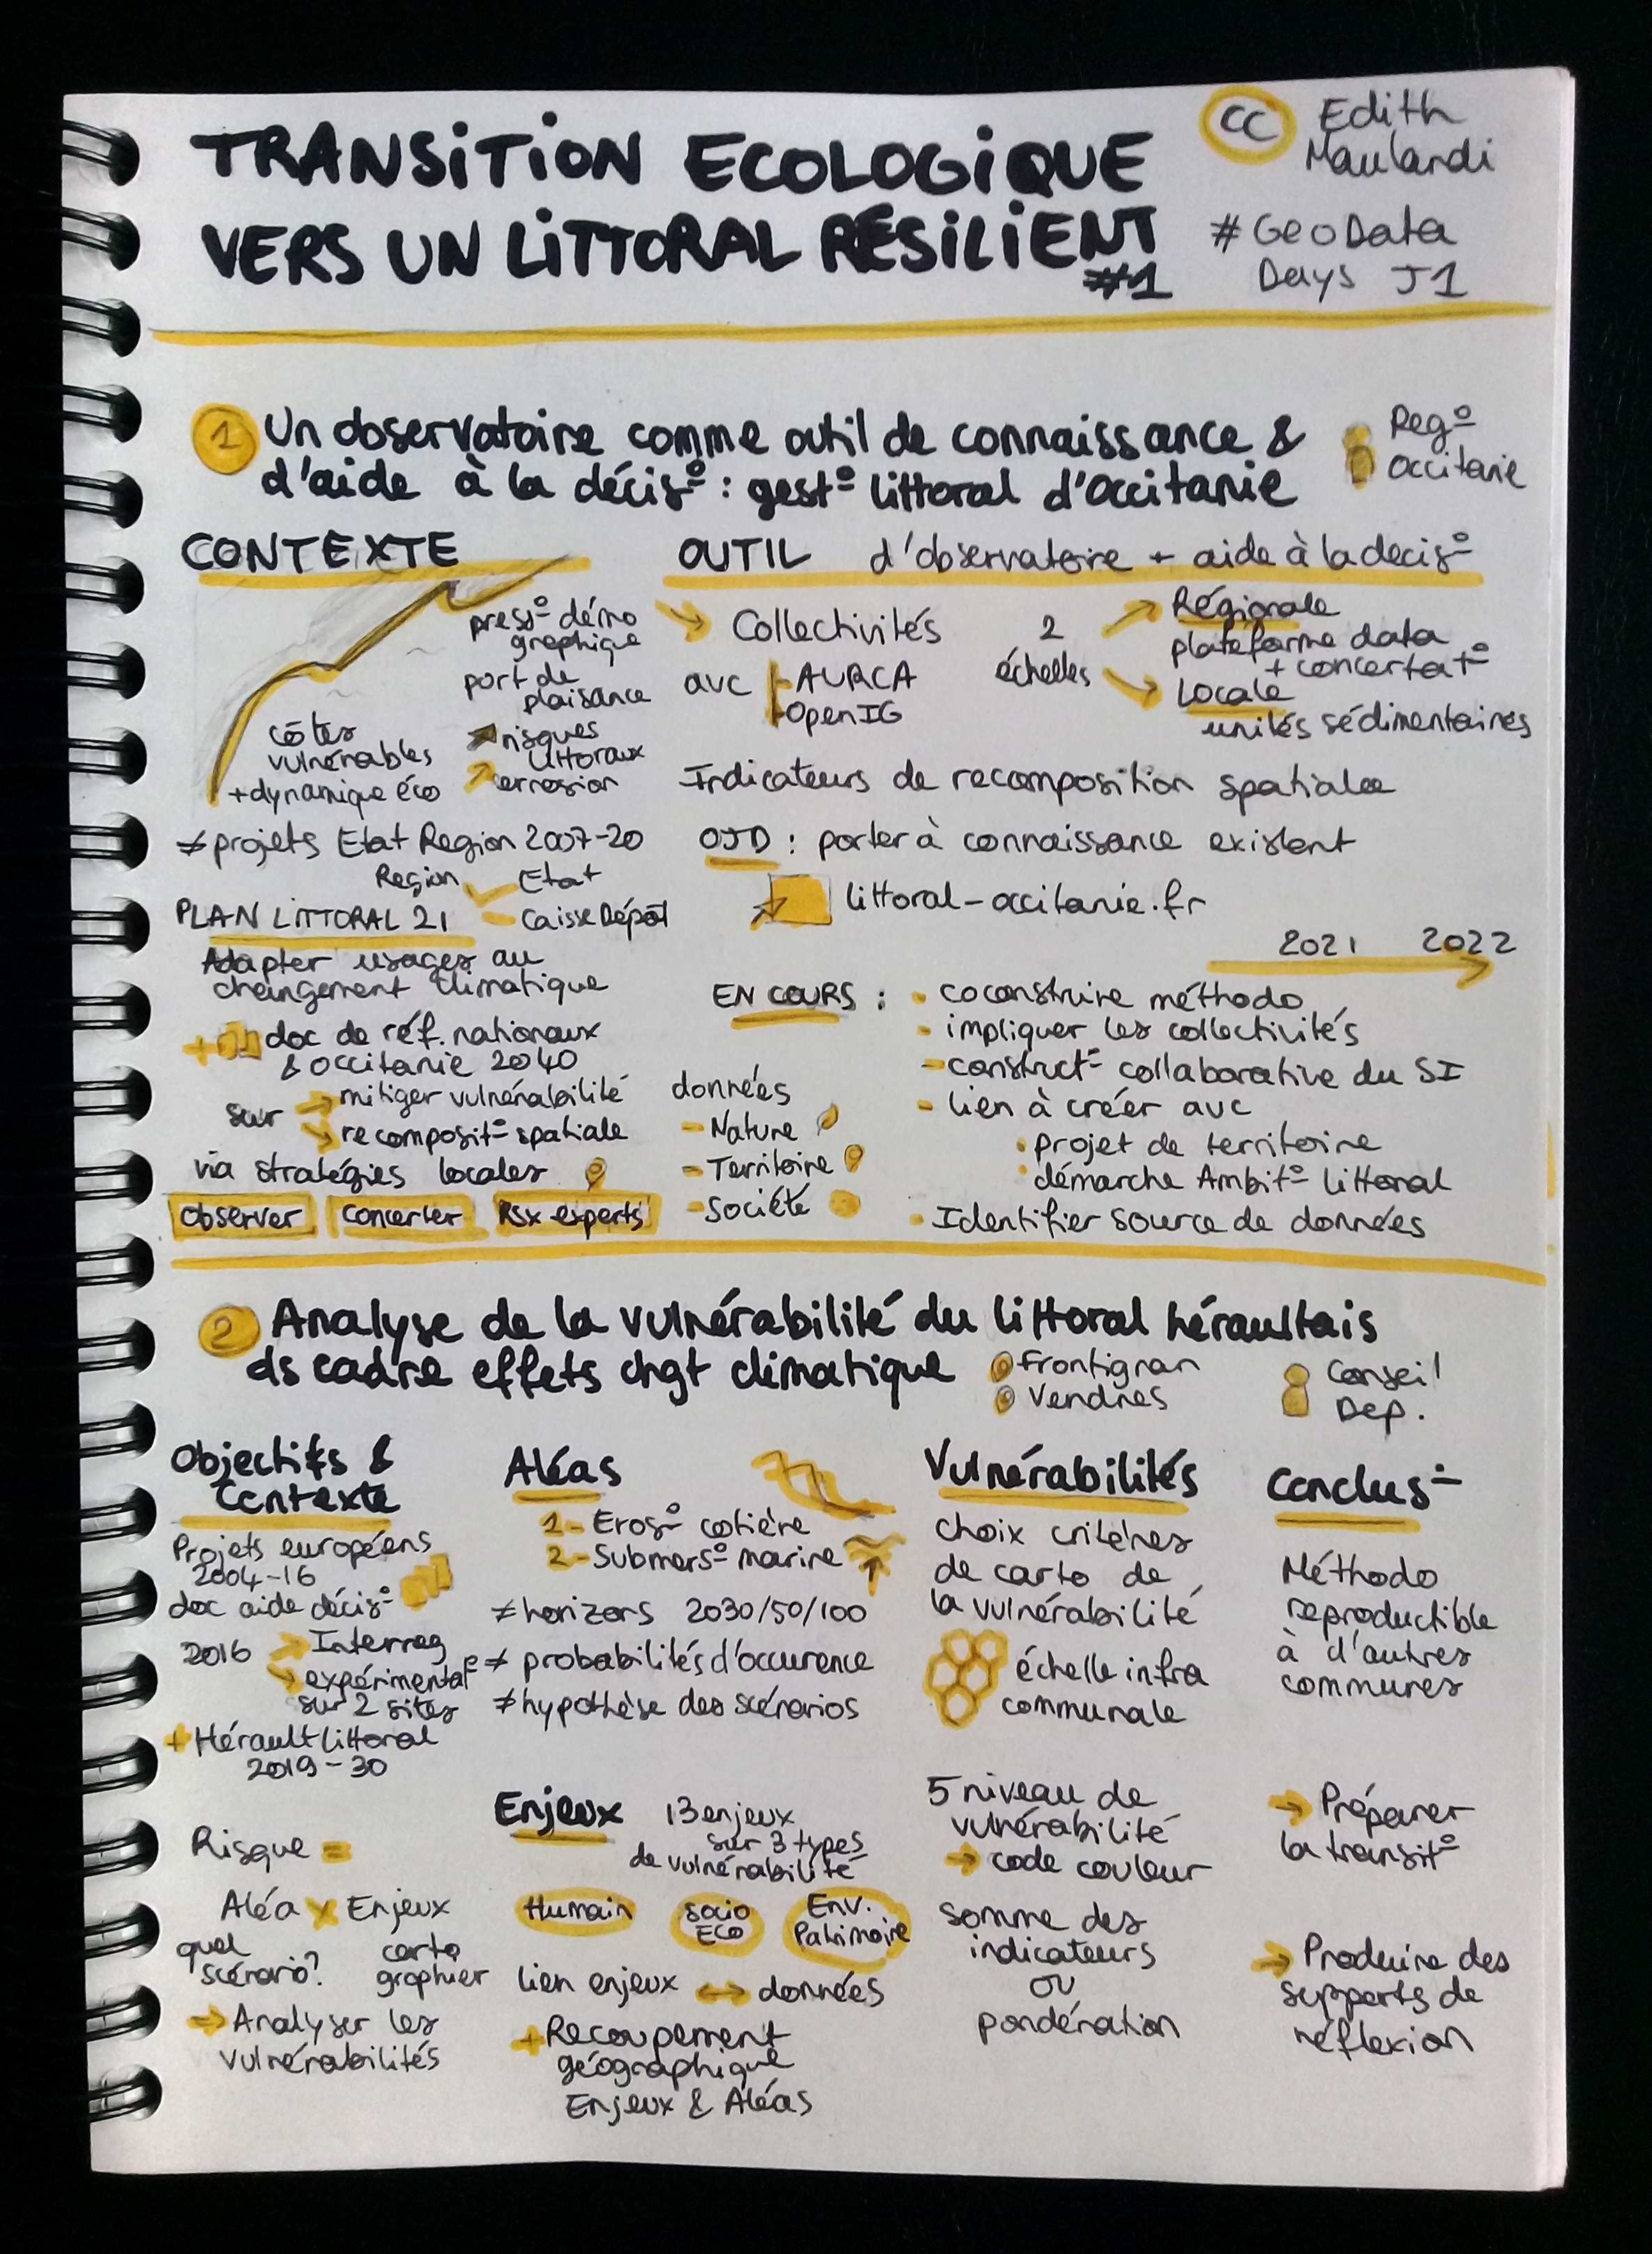 TRANSITION ECOLOGIQUE
VERS UN LITTORAL RESILIENT
#1
CC Edith
Maulandi
#GeoData
Days J1
1 Un observatoire comme outil de connaissance &
d'aide à la décis° : gest° littoral d'Occitanie
Reg°
Occitanie
CONTEXTE
press° démo
graphique
port de
plaisance
côtes
vulnérables
+dynamique éco
risques
littoraux
errosion
≠ projets Etat Region 2007-20
Region Etat
PLAN LITTORAL 21 Caisse Dépôt
Adapter usages au
changement climatique
+ doc de réf. nationaux
& occitanie 2040
sur mitiger vulnérabilité
recomposit° spatiale
via stratégies locales
Observer Concerter Rsx experts
OUTIL d'observatoire + aide à la decis°
→ Collectivités
avc AURCA
OpenIG
2
échelles
Régionale
plateforme data
+ concertat°
Locale
unités sédimentaires
Indicateurs de recomposition spatiale
OJD : porter à connaissance existant
littoral-occitanie.fr
2021 2022
EN COURS : - coconstruire méthodo
- impliquer les collectivités
- construct° collaborative du SI
- lien à créer avc
• projet de territoire
• démarche Ambit° littoral
- Identifier source de données
données
- Nature
- Territoire
- Société
2 Analyse de la vulnérabilité du littoral héraultais
ds cadre effets chgt climatique
Frontignan
Vendres
Conseil
Dep.
Objectifs &
Contexte
Projets européens
2004-16
doc aide décis°
2016 → Interreg
→ expérimentat°
sur 2 sites
+ Hérault littoral
2019-30
Risque =
Aléa x Enjeux
quel
scénario?
carto
graphier
→ Analyser les
vulnérabilités
Aléas
1- Eros° cotière
2- Submers° marine
≠ horizons 2030/50/100
≠ probabilités d'occurence
≠ hypothèse des scénarios
Enjeux 13 enjeux
sur 3 types
de vulnérabilité
Humain
socio
ECO
Env.
Patrimoire
lien enjeux ↔ données
+ Recoupement
géographique
Enjeux & Aléas
Vulnérabilités
choix critères
de carto de
la vulnérabilité
échelle infra
communale
5 niveau de
vulnérabilité
→ code couleur
somme des
indicateurs
ou
pondération
Conclus°
Méthodo
reproductible
à d'autres
communes
→ Préparer
la transit°
→ Produire des
supports de
réflexion